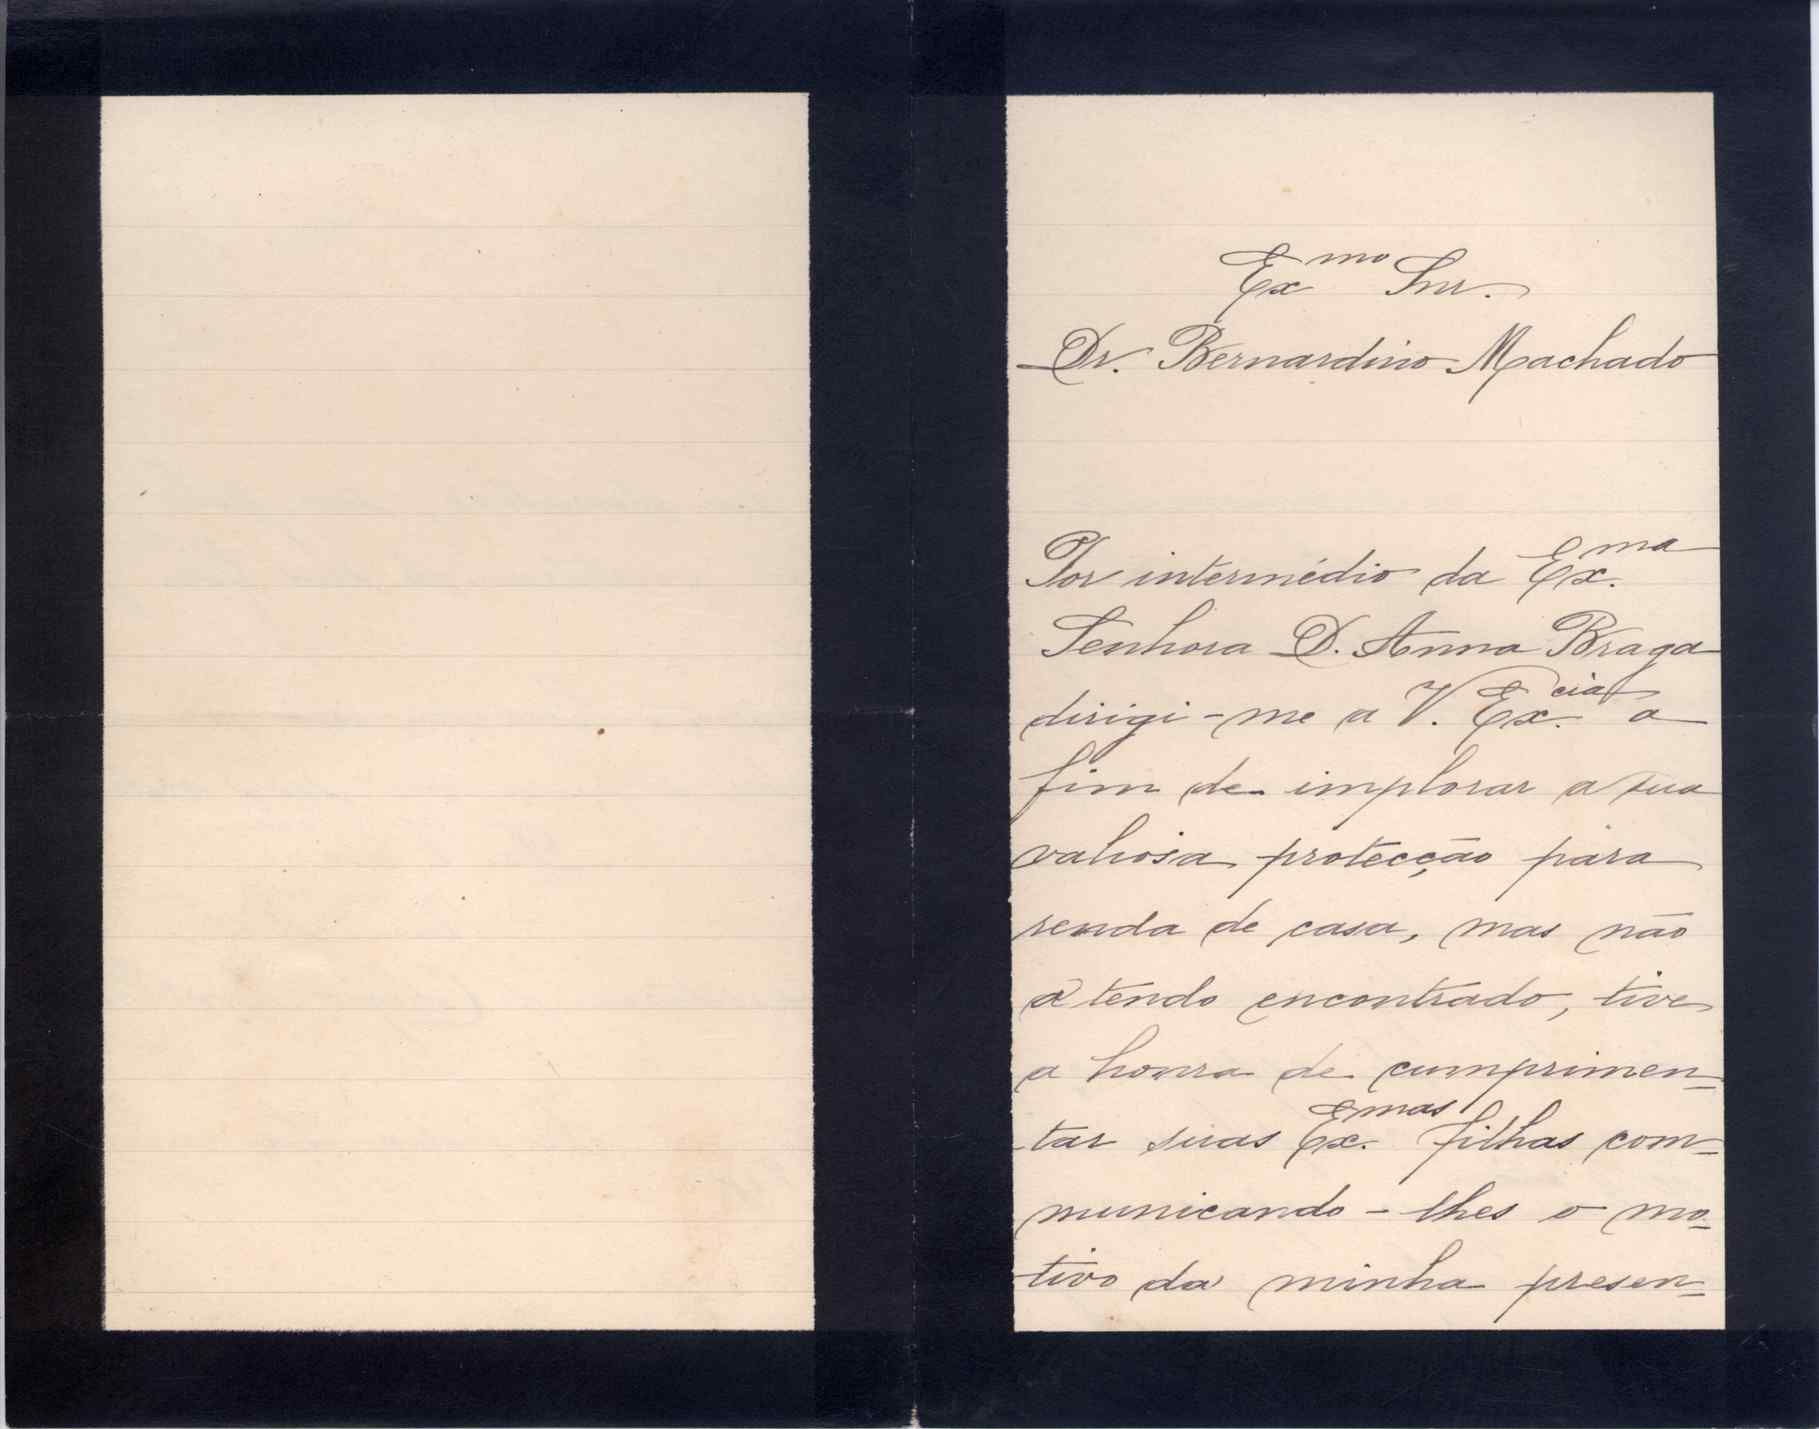 Exmo Snr.
Dr. Bernardino Machado
Por intermédio da Ex.ma
Senhora D. Anna Braga
dirigi-me a V. Ex.cia a
fim de implorar a sua
valiosa protecção para
renda de casa, mas não
a tendo encontrado, tive
a honra de cumprimen=
tar suas Ex.mas filhas com=
municando-lhes o mo=
tivo da minha presen=